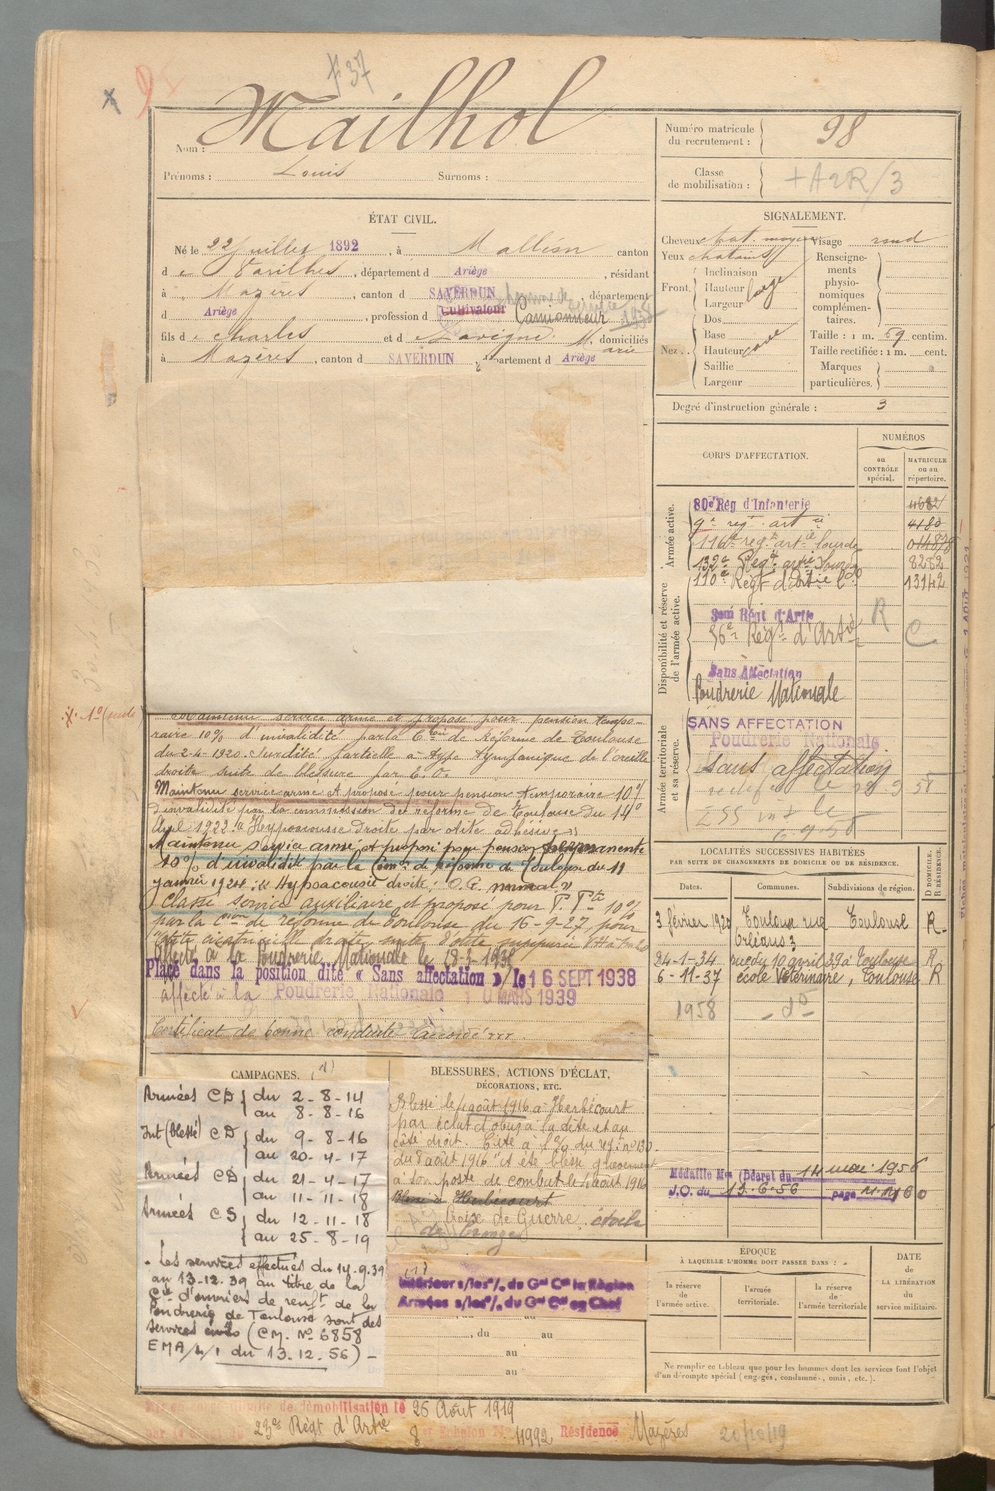 F 37
x 95
Nom : Mailhol
Prénoms : Louis Surnoms :
Numéro matricule du recrutement : 98
Classe de mobilisation : +A2R/3
ÉTAT CIVIL.
Né le 22 juillet 1892, à Malléon canton
d e Varilhes, département d Ariège, résidant
à Mazères, canton d SAVERDUN, département
d Ariège, profession d Cultivateur Camionneur
fils d e Charles et d e Lavigne M arie, domiciliés
à Mazères, canton d SAVERDUN, département d Ariège
SIGNALEMENT.
Cheveux chat. moyen Visage rond
Yeux chatains
Front. Inclinaison
Hauteur
Largeur large
Nez... Dos
Base
Hauteur cave
Saillie
Largeur
Renseignements physionomiques complémentaires.
Taille : 1 m. 59 centim.
Taille rectifiée : 1 m. cent.
Marques particulières.
Degré d'instruction générale : 3
CORPS D'AFFECTATION.
NUMÉROS
au CONTRÔLE spécial.
MATRICULE ou au répertoire.
Armée active.
80e Rég d'Infanterie 4682
9e reg. art ie 4180
116e regt art ie lourde 01482
132e Regt artie lourde 8252
110e Régt d'Artie Lde 13142
Disponibilité et réserve de l'armée active.
R
56e Régt d'Artie C
Sans Affectation
Poudrerie Nationale
Armée territoriale et sa réserve.
SANS AFFECTATION
Poudrerie Nationale
Sans affectation
6 9 58
Maintenu service armé et proposé pour pension tempo-
raire 10% d'invalidité par la Con de Réforme de Toulouse
du 2-4-1920. Surdité partielle à type tympanique de l'oreille
droite suite de blessure par E.O.
Maintenu service armé et proposé pour pension temporaire 10%
d'invalidité par la commission de réforme de Toulouse du 14
Avril 1923. Hypoacousie droite par otite adhésive »
Maintenu service armé et proposé pour pension permanente
10% d'invalidité par la Comon de Réforme de Toulouse du 11
janvier 1924. « Hypoacousie droite. O.G. normal »
Classé service auxiliaire et proposé pour P. Pte 10%
par la Cion de réforme de Toulouse du 16-9-27, pour
Affecté à la Poudrerie Nationale le 18-2-1938
Placé dans la position dité « Sans affectation » le 16 SEPT 1938
affecté à la Poudrerie Nationale 10 MARS 1939
Certificat de bonne conduite Accordé
LOCALITÉS SUCCESSIVES HABITÉES
PAR SUITE DE CHANGEMENTS DE DOMICILE OU DE RÉSIDENCE.
Dates. Communes. Subdivisions de région. D DOMICILE. R RÉSIDENCE.
3 février 1920 Toulouse rue Orléans 3 Toulouse R
24-1-34 rue du 10 avril 39 à Toulouse R
6-11-37 école Vétérinaire, Toulouse R
1958 - do -
Médaille Mre (Décret du 14 mai 1956
J.O. du 13.6.56 page
CAMPAGNES. (1)
Armées CD { du 2-8-14
au 8-8-16
Int (Blessé) CD { du 9-8-16
au 20-4-17
Armées CD { du 21-4-17
au 11-11-18
Armées CS { du 12-11-18
au 25-8-19
« Les services effectués du 14.9.39
au 13.12.39 au titre de la
Cie d'ouvriers de renft de la
Poudrerie de Toulouse sont des
services civils (CM. No 6858
EMA/L/1 du 13.12.56) -
BLESSURES, ACTIONS D'ÉCLAT,
DÉCORATIONS, ETC.
Blessé le 1 août 1916 à Herbécourt
par éclat d'obus à la tête et au
côté droit. Cité à l'o/ du régt no 130
du 8 août 1916 "A été blessé gravement
à son poste de combat le 1 août 1916
Blessé à Herbécourt
Croix de Guerre étoile
de bronze
(1)
Intérieur s/les o/. du Gal Ct la Région
Armées s/les o/. du Gal Ct en Chef
, du au
au
au
ÉPOQUE
À LAQUELLE L'HOMME DOIT PASSER DANS :
la réserve de l'armée active.
l'armée territoriale.
la réserve de l'armée territoriale
DATE de la LIBÉRATION du service militaire.
Ne remplir ce tableau que pour les hommes dont les services font l'objet
d'un décompte spécial (engagés, condamnés, omis, etc.).
démobilisation le 25 Août 1919
23e Régt d'Artie 8 Echelon No 11992 Résidence Mazères 20/10/19